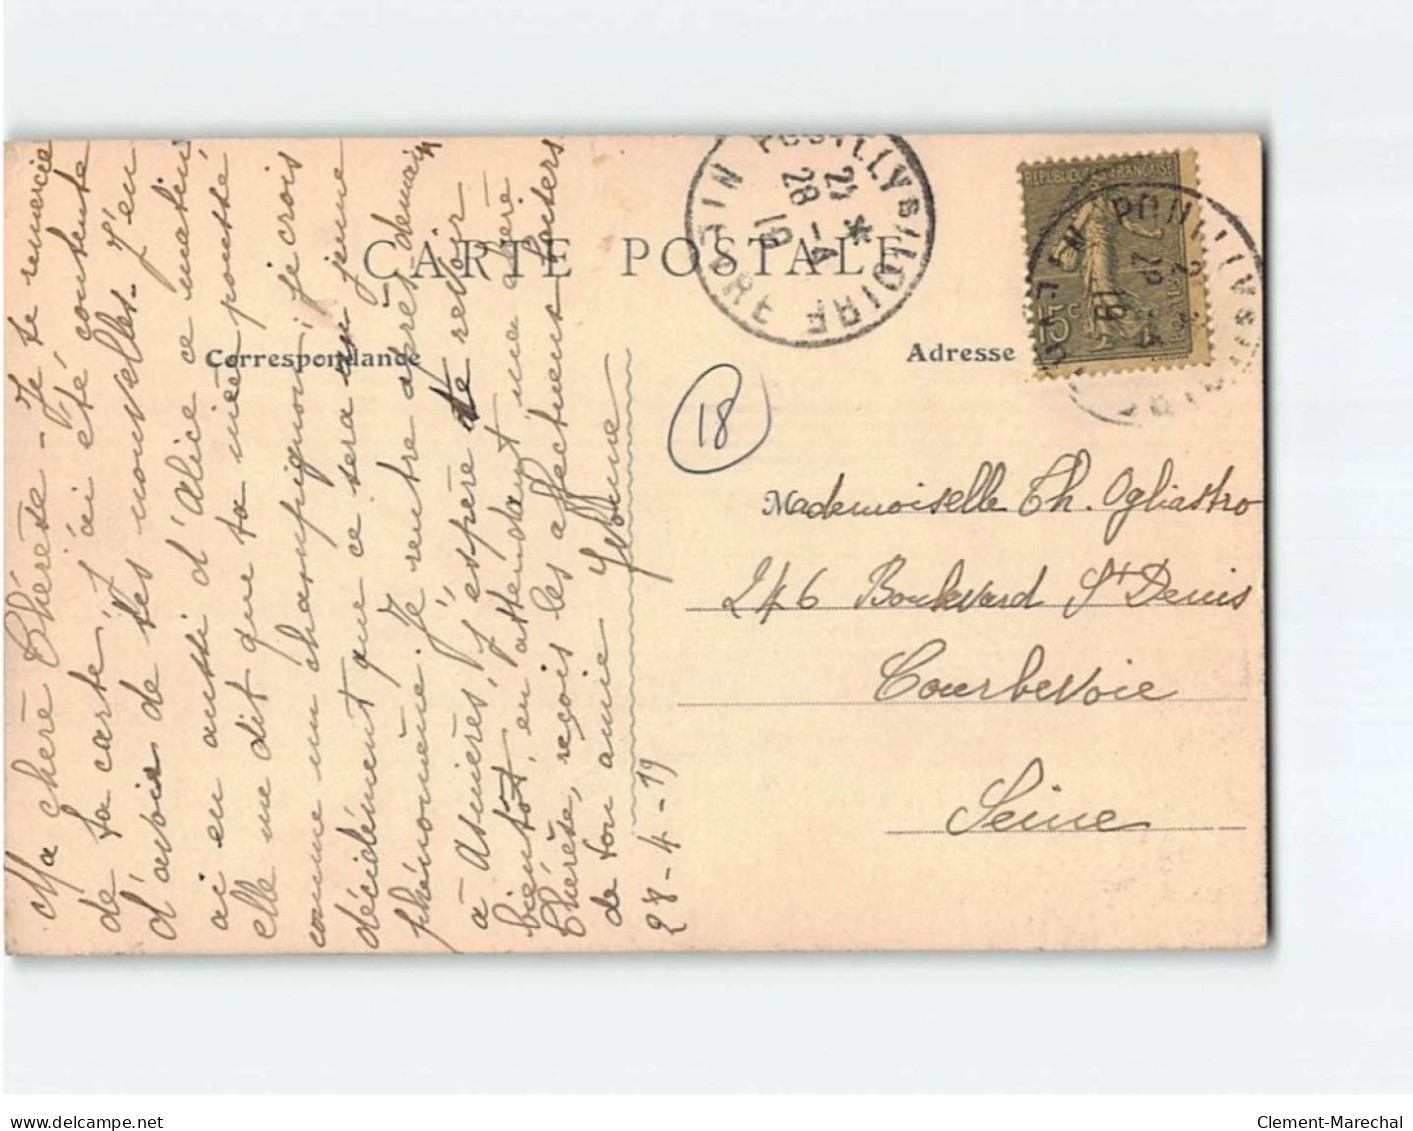 CARTE POSTALE
Correspondance
Adresse
Ma chère Thérèse - Je te remercie
de ta carte, j'ai été contente
d'avoir de tes nouvelles - J'en
ai en aussi d'Alice ce matin
elle me dit que ta nièce pousse
comme un champignon, je crois
décidément que ce sera une jeune
phénomène. Je rentre après demain
à Asnières, j'espère te revoir
bientôt, en attendant ma chère
Thérèse, reçois les affectueux baisers
de ton amie Yvonne
28-4-19
POUILLY S/LOIRE
21 *
28 -4
19
NIÈVRE
18
REPUBLIQUE FRANÇAISE
15c
POUILLY S
19
Mademoiselle Th. Ogliastro
246 Boulevard St Denis
Courbevoie
Seine
delcampe.net
Clement-Marechal